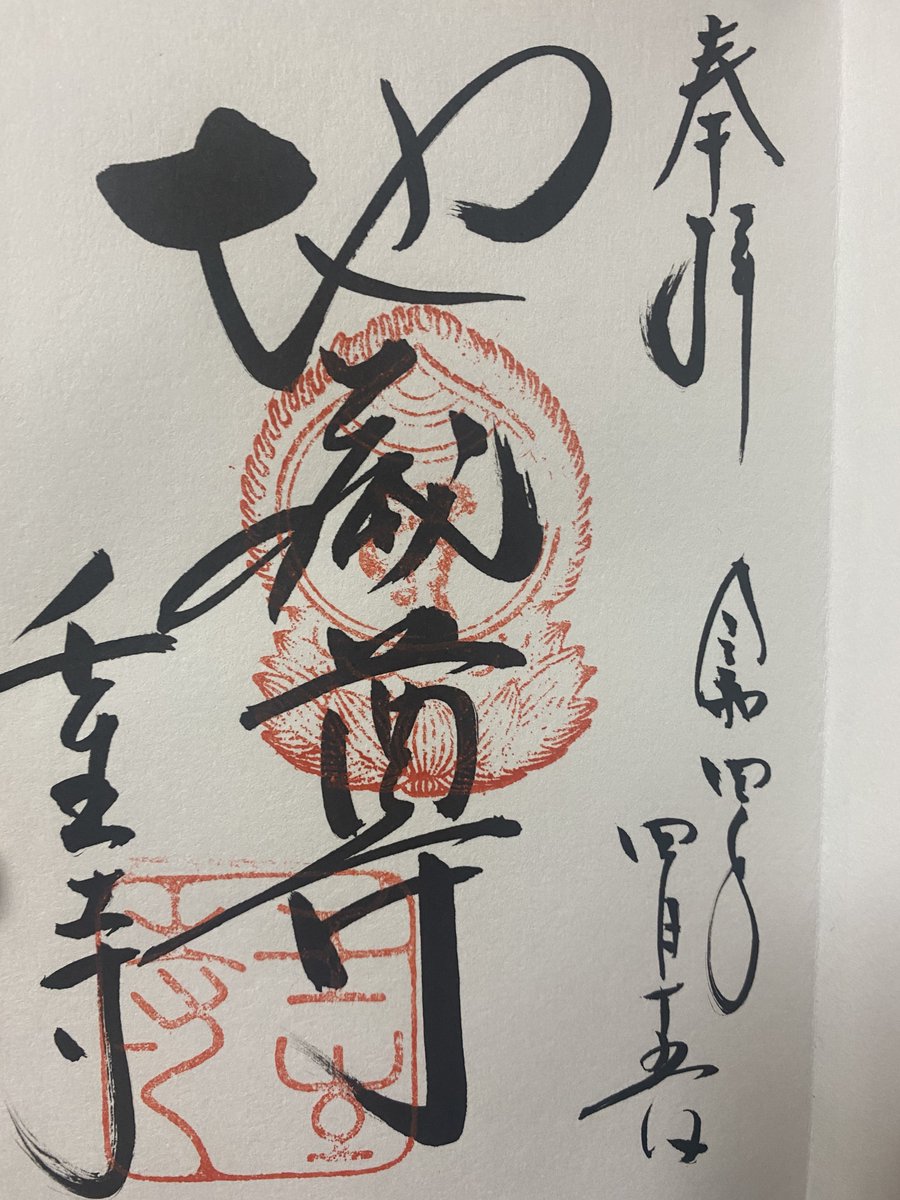 奉拝
令和四年
四月十五日
地蔵尊
壬生寺